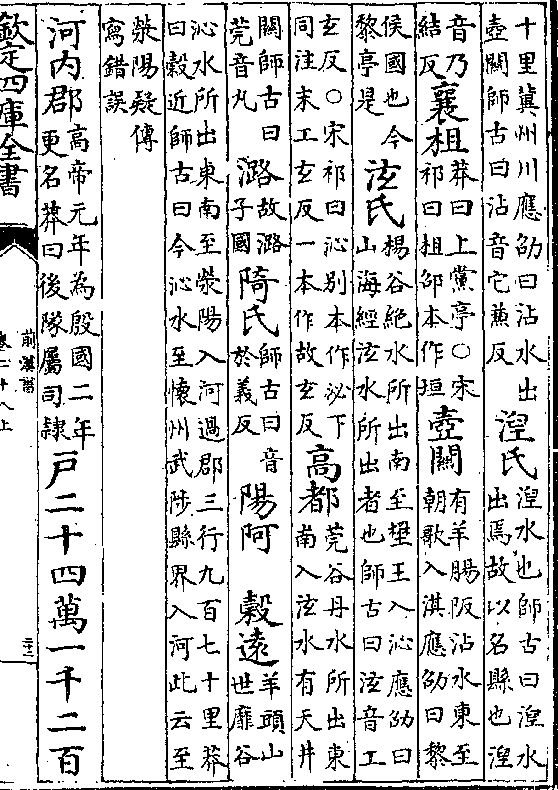 十里冀州川應劭曰沾水出壺關師古曰沾音它蒹反涅氏涅水也師古曰涅水出焉故以名縣也涅
音乃結反襄柤莽曰上黨亭○宋祁曰柤邵本作垣壺關有羊腸阪沾水東至朝歌入淇應劭曰黎
侯國也今黎亭是泫氏楊谷絶水所出南至壄王入沁應劭曰山海經泫水所出者也師古曰泫音工
玄反○宋祁曰沁别本作泌下同注末工玄反一本作故玄反高都莞谷丹水所出東南入泫水有天井
關師古曰莞音丸潞故潞子國陭氏師古曰音於義反陽阿 穀遠羊頭山世靡谷
沁水所出東南至滎陽入河過郡三行九百七十里莽曰穀近師古曰今沁水至懷州武陟縣界入河此云至
滎陽疑傳寫錯誤
河内郡高帝元年為殷國二年更名莽曰後隊屬司隸戶二十四萬一千二百
欽定四庫全書
前漢書
卷二十八上